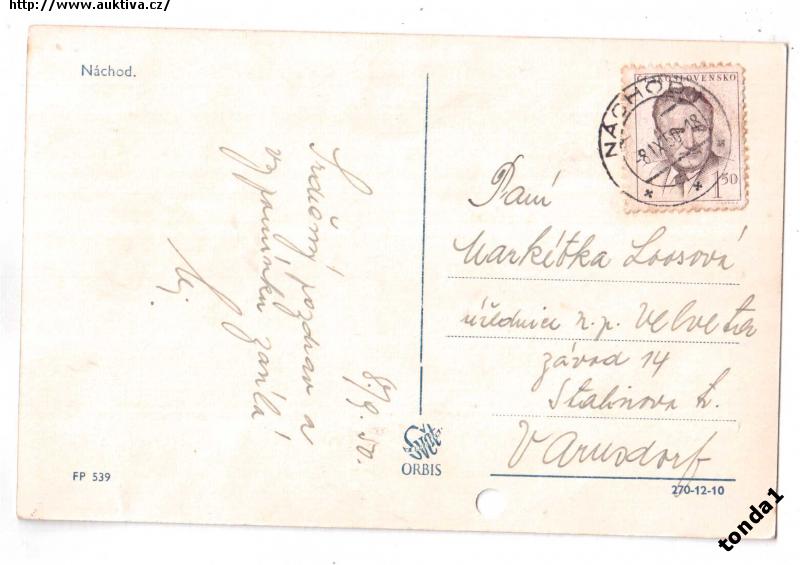 http://www.auktiva.cz/
Náchod.
8./9. 50.
Srdečný pozdrav a
vzpomínku zasílá
ČESKOSLOVENSKO
1 50
NÁCHOD 1
-8.IX.50.-18
Paní
Markétka Loosová
úřednice n.p. Velveta
závod 14
Stalinova tř.
Varnsdorf
Svět
ORBIS
FP 539
270-12-10
tonda1